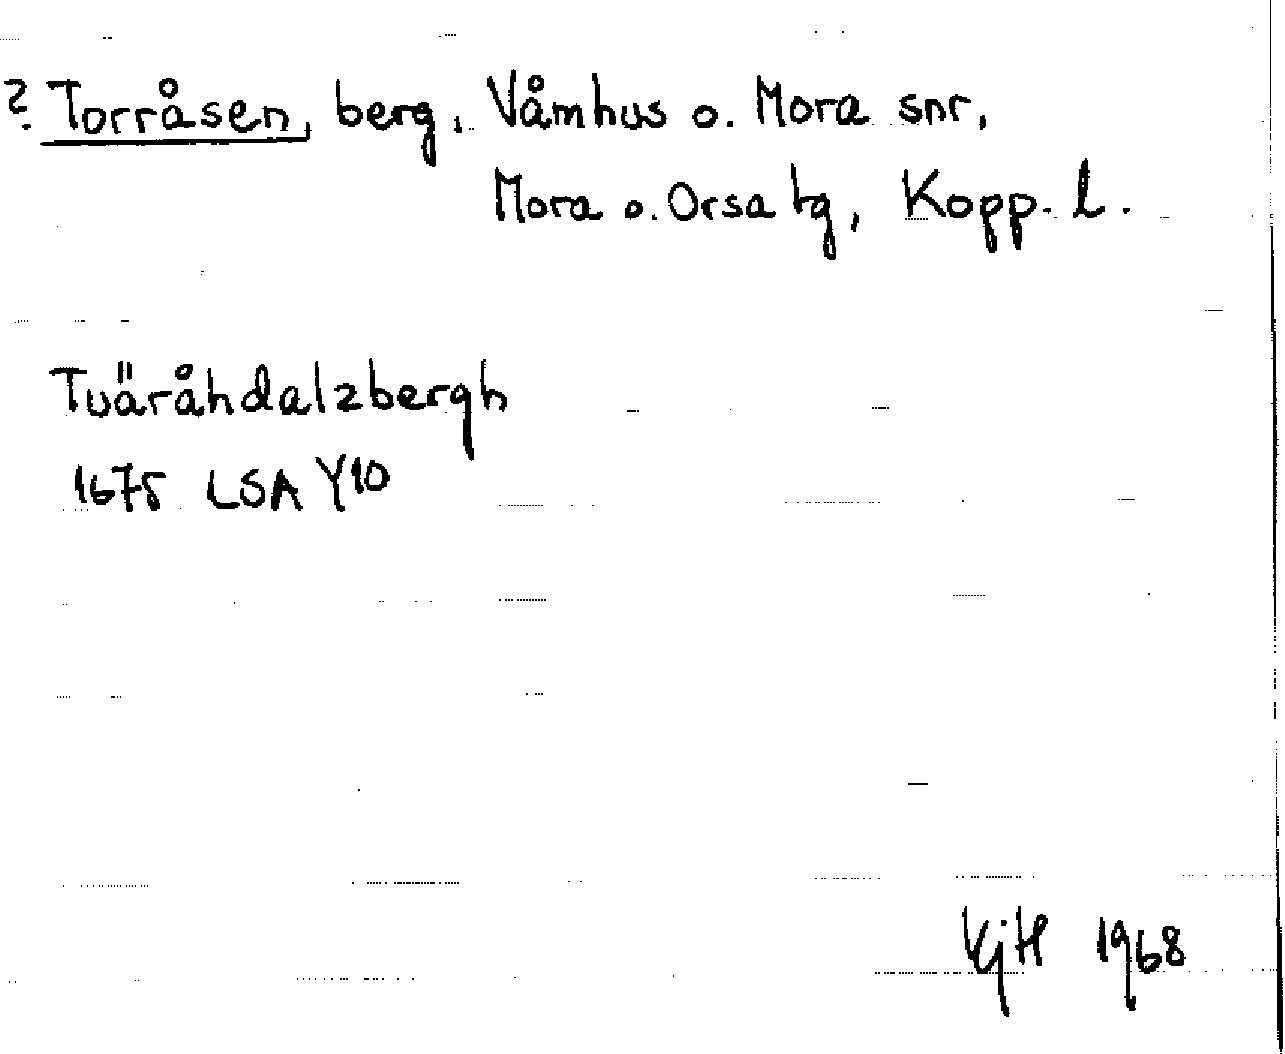 ? Torråsen, berg, Våmhus o. Mora snr,
Mora o. Orsa tg, Kopp. l.
Tuäråhdalzbergh
1675 LSA Y10
KjH 1968